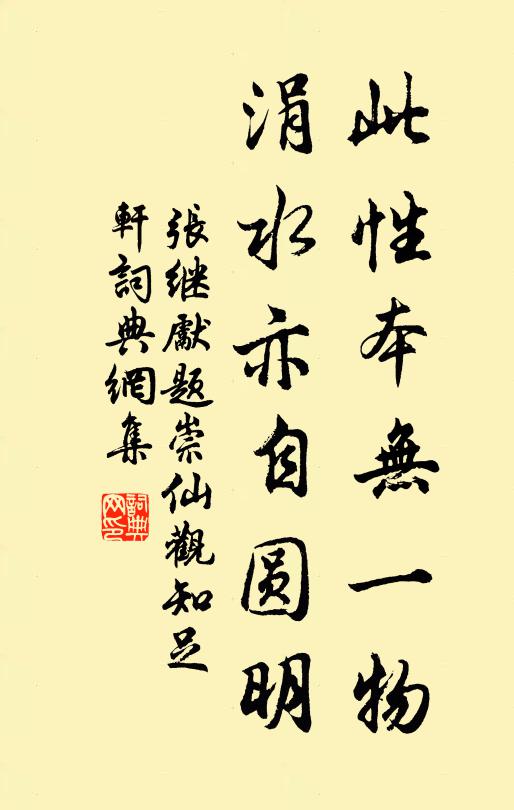 此性本無一物
涓水亦自圆明
張继獻題崇仙觀知足
軒詞典網集
詞典
网印